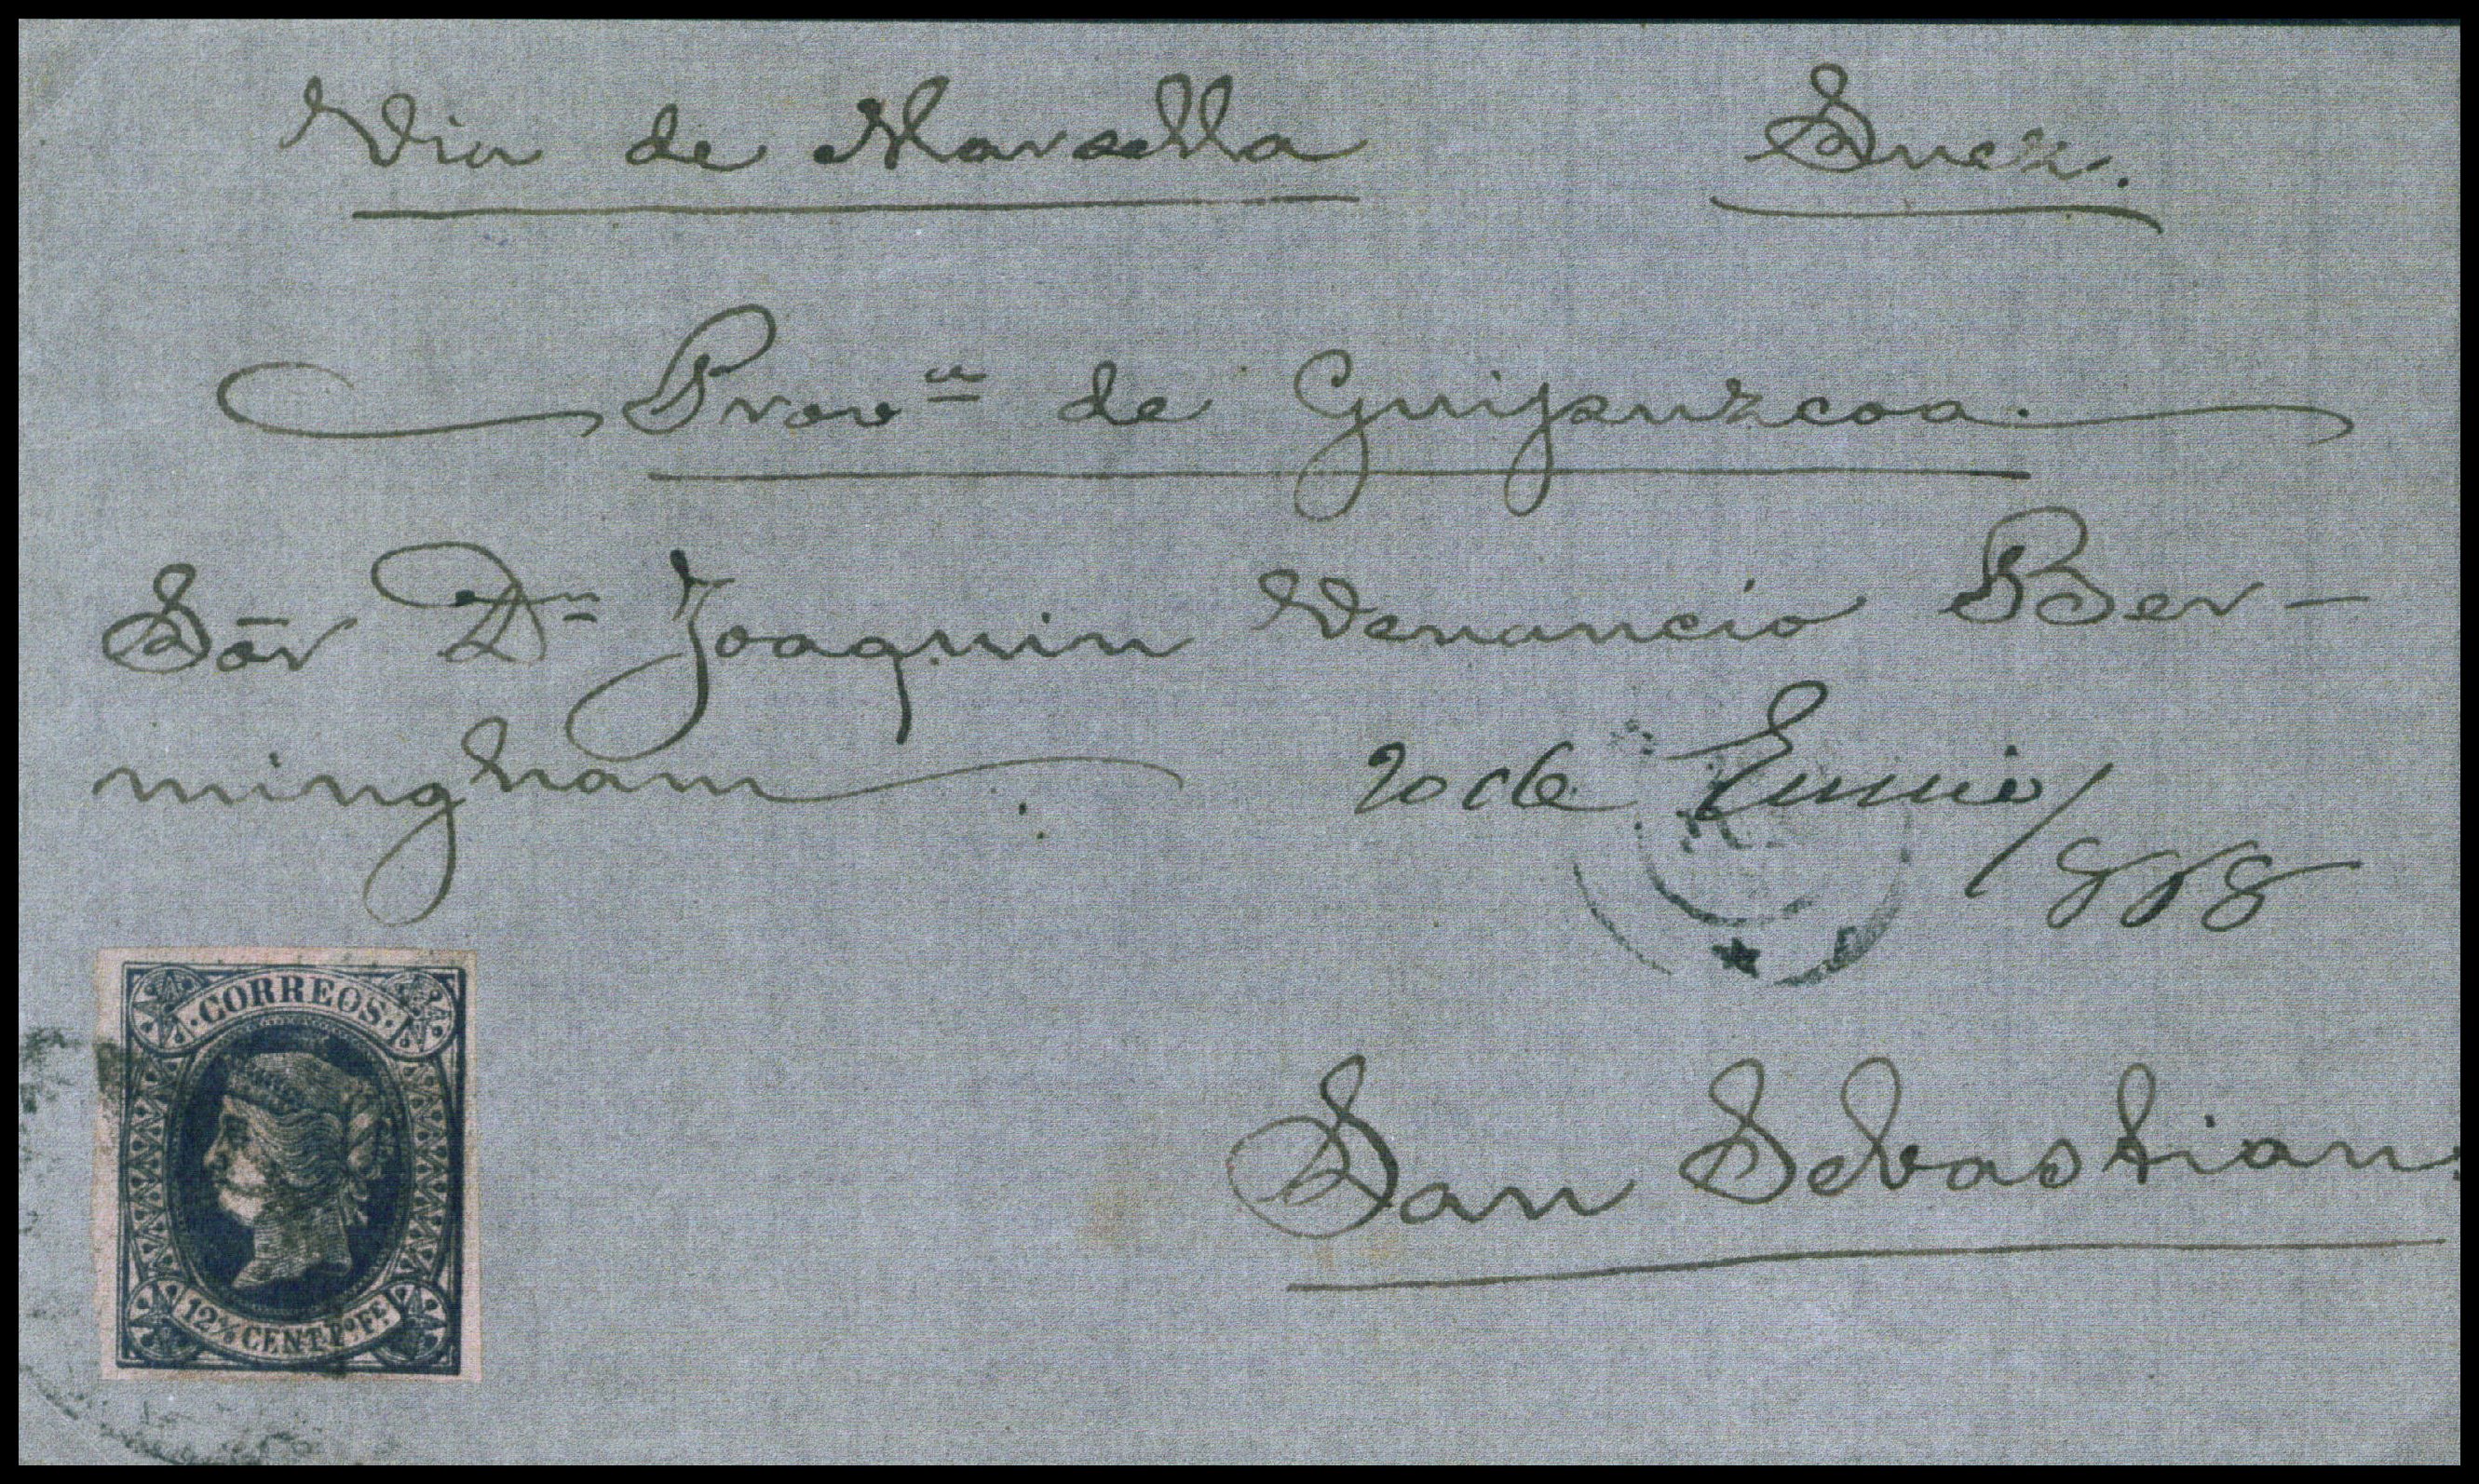 Via de Marsella Suez.
Prov.ª de Guipuzcoa.
Sōr Dn Joaquin Venancio Ber-
mingham
20 de
San Sebastian
·CORREOS·
12 4/8 CENT. Pº Fe.